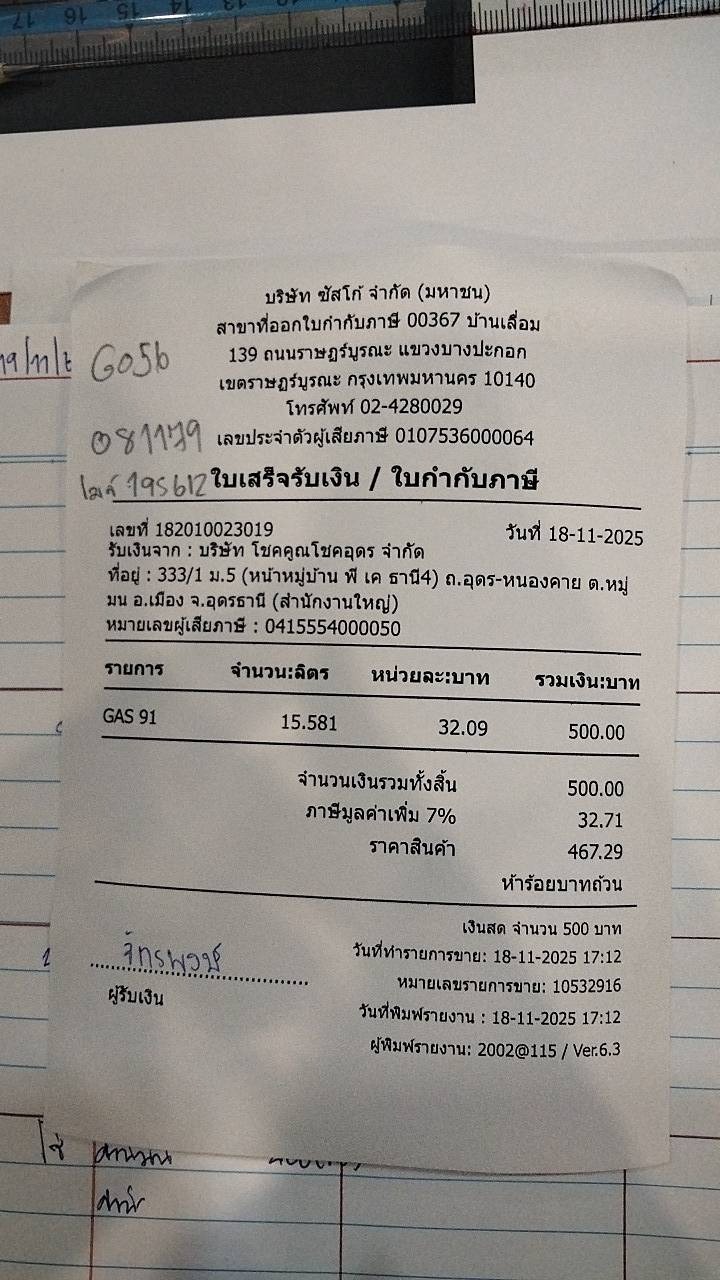 17 16 15 14 13
บริษัท ซัสโก้ จำกัด (มหาชน)
สาขาที่ออกใบกำกับภาษี 00367 บ้านเลื่อม
G056
139 ถนนราษฎร์บูรณะ แขวงบางปะกอก
เขตราษฎร์บูรณะ กรุงเทพมหานคร 10140
โทรศัพท์ 02-4280029
081179
เลขประจำตัวผู้เสียภาษี 0107536000064
ไมค์ 195612
ใบเสร็จรับเงิน / ใบกำกับภาษี
เลขที่ 182010023019 วันที่ 18-11-2025
รับเงินจาก : บริษัท โชคคูณโชคอุดร จำกัด
ที่อยู่ : 333/1 ม.5 (หน้าหมู่บ้าน พี เค ธานี4) ถ.อุดร-หนองคาย ต.หมู
มน อ.เมือง จ.อุดรธานี (สำนักงานใหญ่)
หมายเลขผู้เสียภาษี : 0415554000050
รายการ จำนวน:ลิตร หน่วยละ:บาท รวมเงิน:บาท
GAS 91 15.581 32.09 500.00
จำนวนเงินรวมทั้งสิ้น 500.00
ภาษีมูลค่าเพิ่ม 7% 32.71
ราคาสินค้า 467.29
ห้าร้อยบาทถ้วน
เงินสด จำนวน 500 บาท
วันที่ทำรายการขาย: 18-11-2025 17:12
หมายเลขรายการขาย: 10532916
ผู้รับเงิน
วันที่พิมพ์รายงาน : 18-11-2025 17:12
ผู้พิมพ์รายงาน: 2002@115 / Ver.6.3